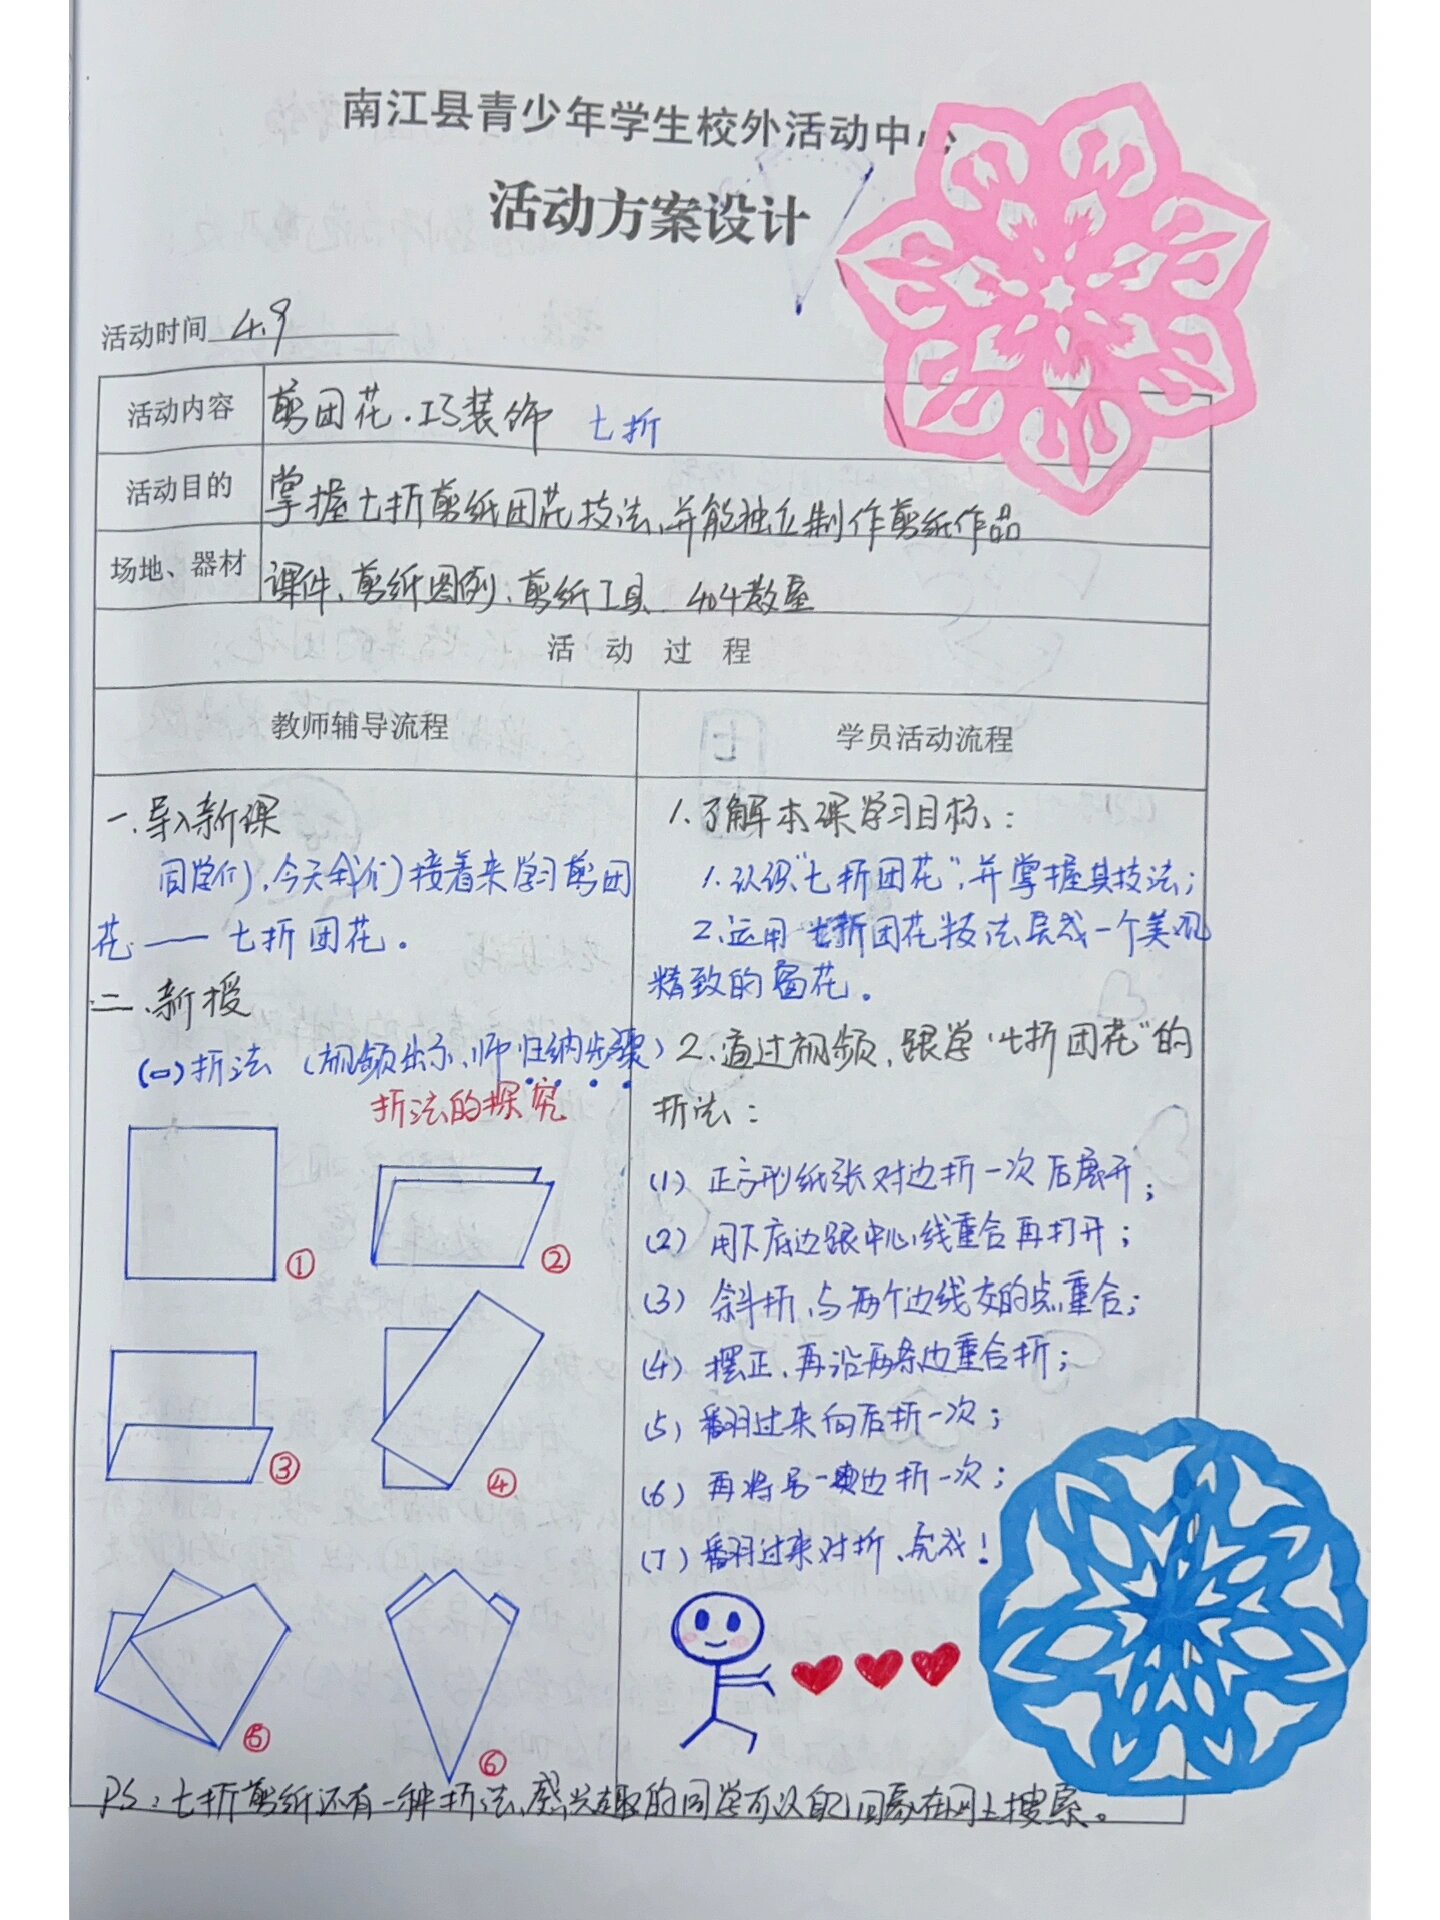 南江县青少年学生校外活动中心
活动方案设计
活动时间 4.9
活动内容 剪团花.巧装饰 七折
活动目的 掌握七折剪纸团花技法,并能独立制作剪纸作品
场地、器材 课件、剪纸图例、剪纸工具 404教室
活动过程
教师辅导流程
一.导入新课
同学们,今天我们接着来学习剪团
花——七折团花.
二.新授
(一)折法(视频出示,师归纳步骤)
折法的探究
①
②
③
④
⑤
⑥
学员活动流程
1.了解本课学习目标:
1.认识“七折团花”,并掌握其技法;
2.运用七折团花技法完成一个美观
精致的窗花。
2.通过视频,跟学“七折团花”的
折法:
(1) 正方形纸张对边折一次后展开;
(2) 用下底边跟中心线重合再打开;
(3) 斜折,与两个边线交的点重合;
(4) 摆正,再沿两条边重合折;
(5) 翻过来向后折一次;
(6) 再将另一边折一次;
(7) 翻过来对折,完成!
PS:七折剪纸还有一种折法,感兴趣的同学可以自己回家在网上搜索。